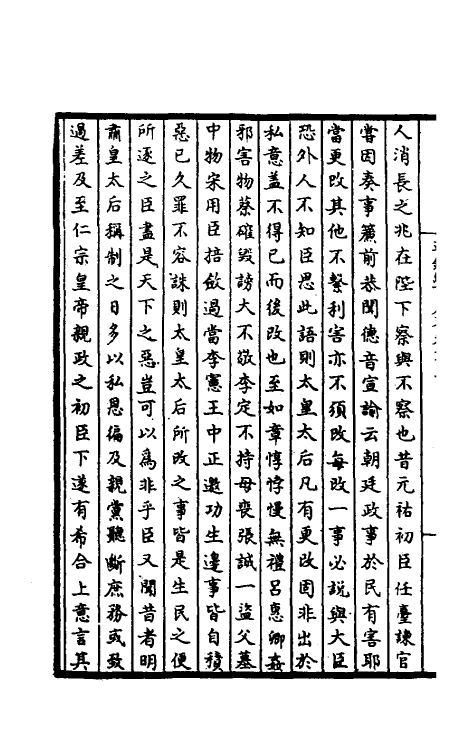 人消長之兆在陛下察與不察也昔元祐初臣任臺諫官
嘗因奏事簾前恭聞德音宣諭云朝廷政事於民有害耶
當更改其他不繫利害亦不須改每改一事必説與大臣
恐外人不知臣思此語則太皇太后凡有更改固非出於
私意盖不得已而後改也至如章惇悖慢無禮吕惠卿姦
邪害物蔡確毀謗大不敬李定不持母喪張誠一盜父墓
中物宋用臣掊歛過當李憲王中正邀功生邊事皆自積
惡已久罪不容誅則太皇太后所改之事皆是生民之便
所逐之臣盡是天下之惡豈可以為非乎臣又聞昔者明
肅皇太后稱制之日多以私恩徧及親黨聽斷庶務或致
過差及至仁宗皇帝親政之初臣下遂有希合上意言其